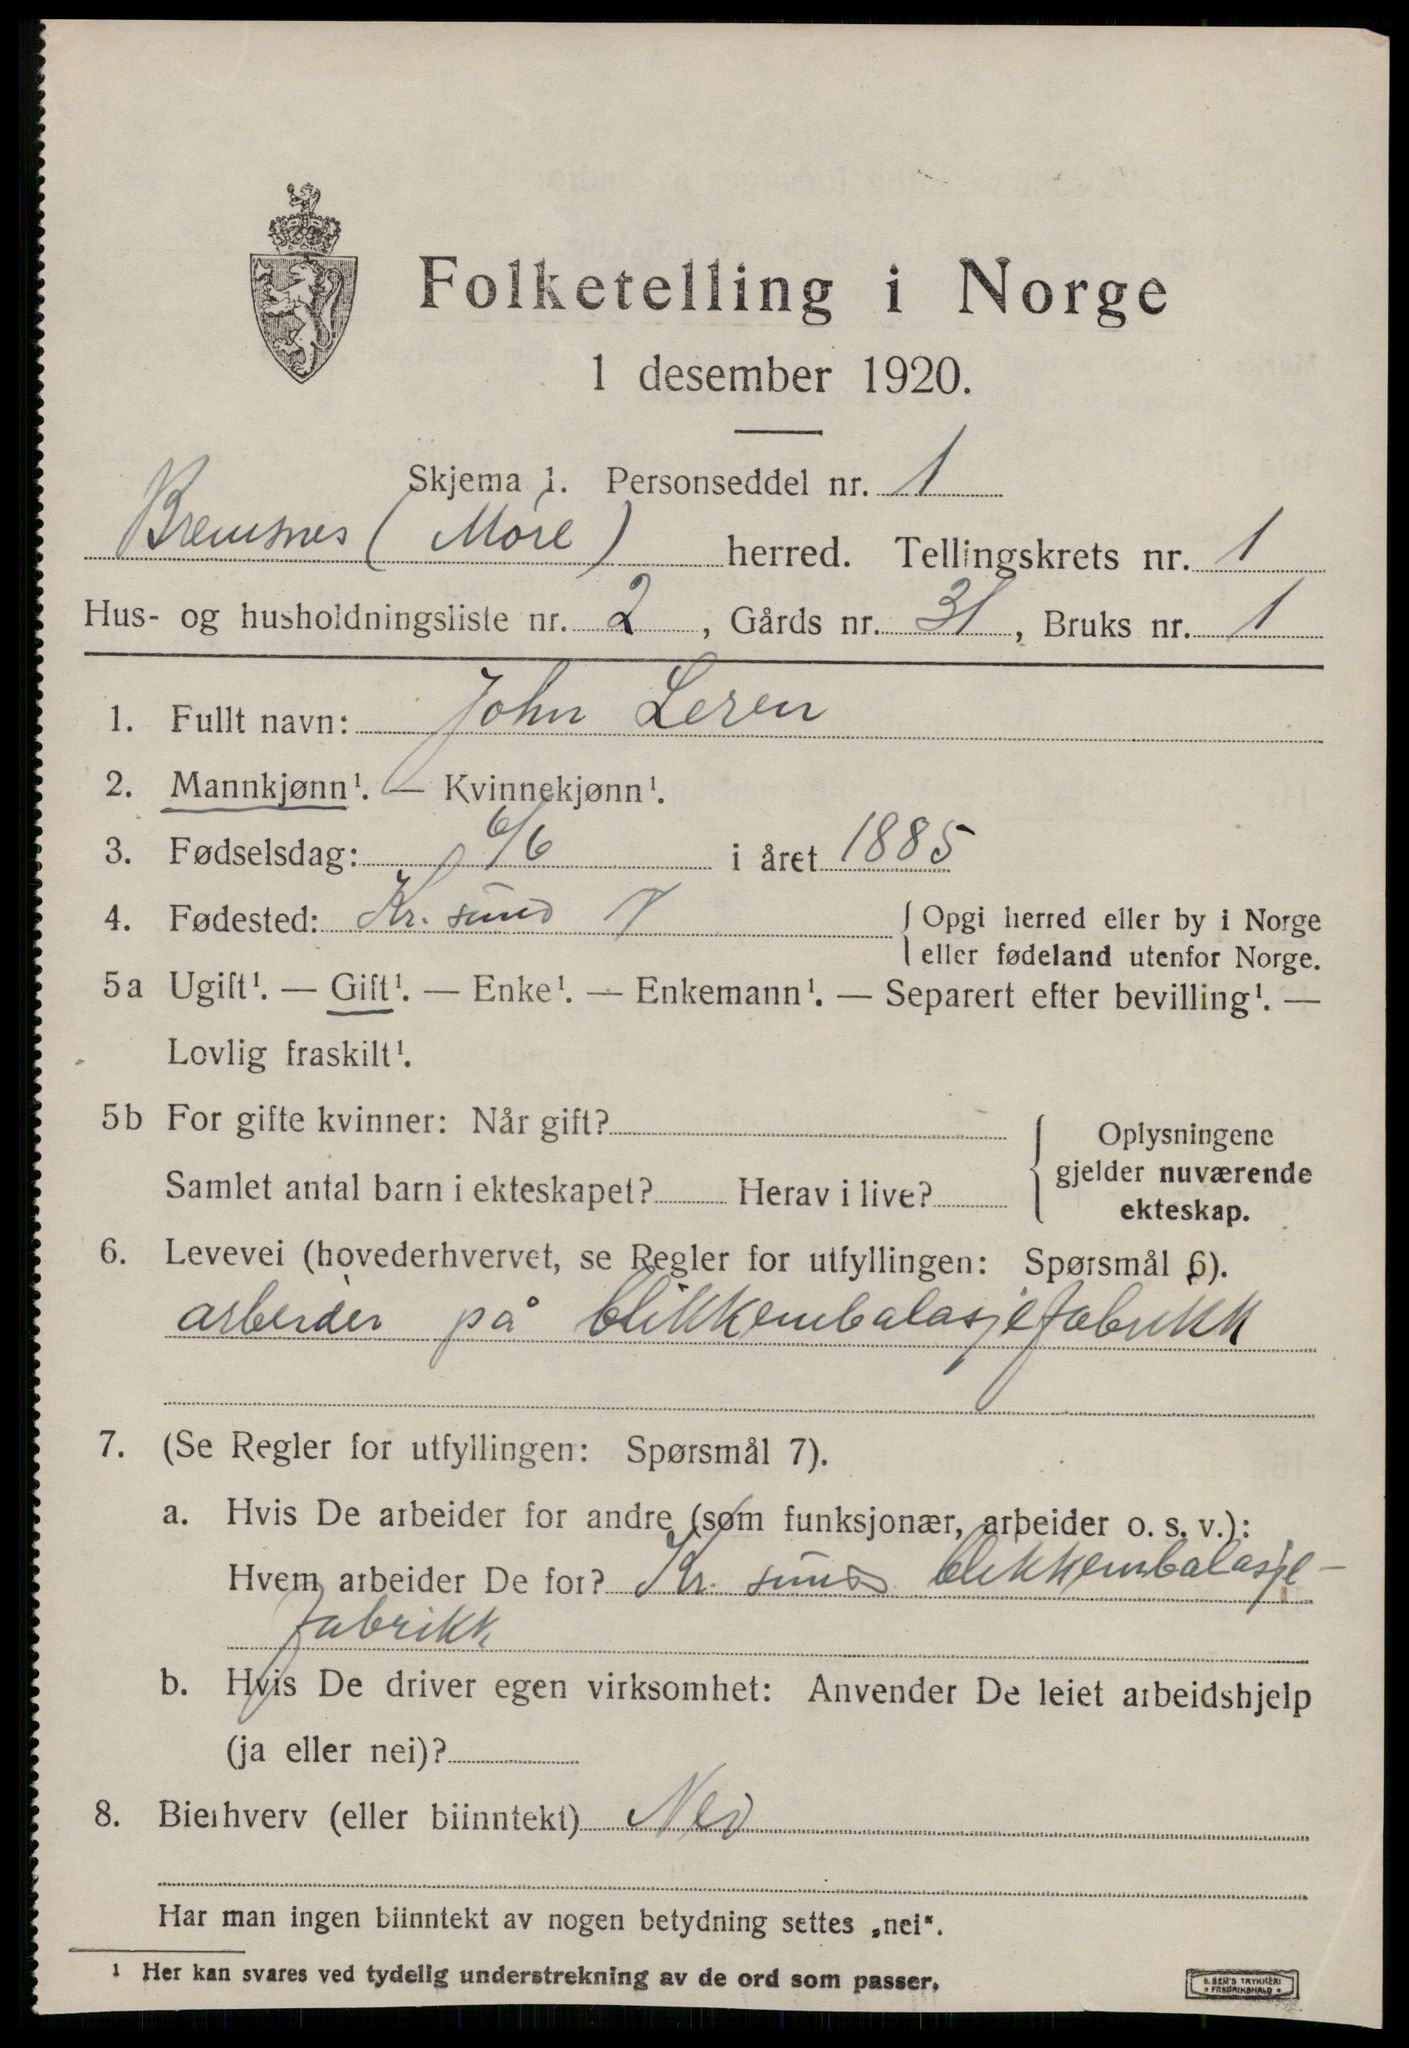 Folketelling i Norge
1 desember 1920.
Skjema 1. Personseddel nr. 1
Bremsnes (Møre) herred. Tellingskrets nr. 1
Hus- og husholdningsliste nr. 2, Gårds nr. 31, Bruks nr. 1
1. Fullt navn: John Leren
2. Mannkjønn¹. — Kvinnekjønn¹.
3. Fødselsdag: 6/6 i året 1885
4. Fødested: Kr. sund N { Opgi herred eller by i Norge
eller fødeland utenfor Norge.
5a Ugift¹. — Gift¹. — Enke¹. — Enkemann¹. — Separert efter bevilling¹. —
Lovlig fraskilt¹.
5b For gifte kvinner: Når gift?
Samlet antal barn i ekteskapet? Herav i live?
{ Oplysningene
gjelder nuværende
ekteskap.
6. Levevei (hovederhvervet, se Regler for utfyllingen: Spørsmål 6).
arbeider på blikkembalasjefabrikk
7. (Se Regler for utfyllingen: Spørsmål 7).
a. Hvis De arbeider for andre (som funksjonær, arbeider o. s. v.):
Hvem arbeider De for? Kr. sunds blikkembalasje-
fabrikk
b. Hvis De driver egen virksomhet: Anvender De leiet arbeidshjelp
(ja eller nei)?
8. Bierhverv (eller biinntekt) Nei
Har man ingen biinntekt av nogen betydning settes „nei“.
¹ Her kan svares ved tydelig understrekning av de ord som passer.
S. SEM'S TRYKKERI
• FREDRIKSHALD •